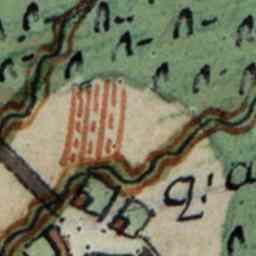 q: a